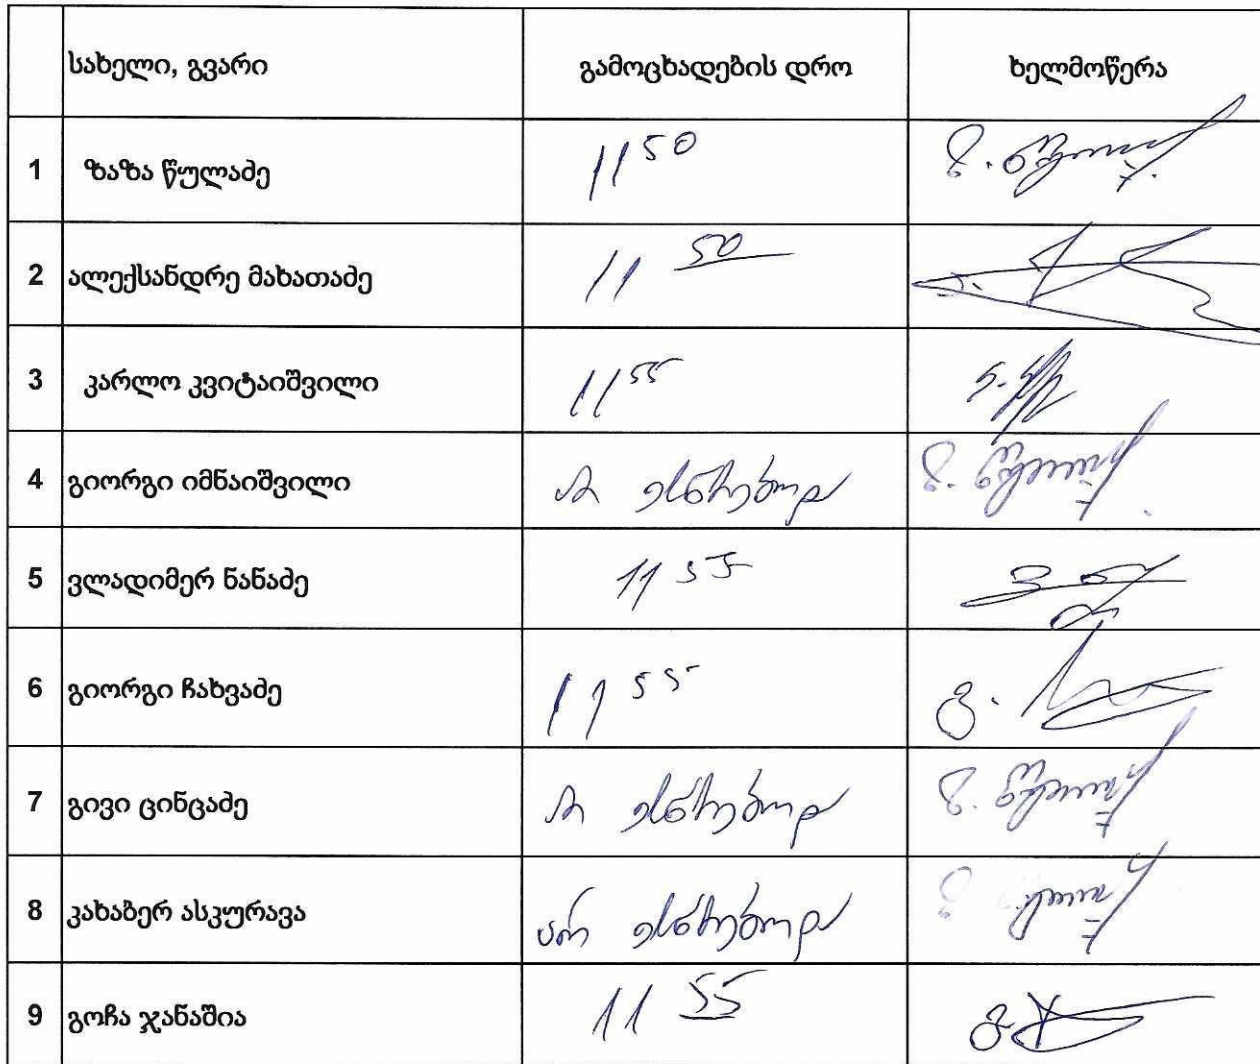 სახელი, გვარი გამოცხადების დრო ხელმოწერა
1 ზაზა წულაძე 11 50
2 ალექსანდრე მახათაძე 11 50
3 კარლო კვიტაიშვილი 11 55
4 გიორგი იმნაიშვილი არ ესწრებოდა
5 ვლადიმერ ნანაძე 11 55
6 გიორგი ჩახვაძე 11 55
7 გივი ცინცაძე არ ესწრებოდა
8 კახაბერ ასკურავა არ ესწრებოდა
9 გოჩა ჯანაშია 11 55